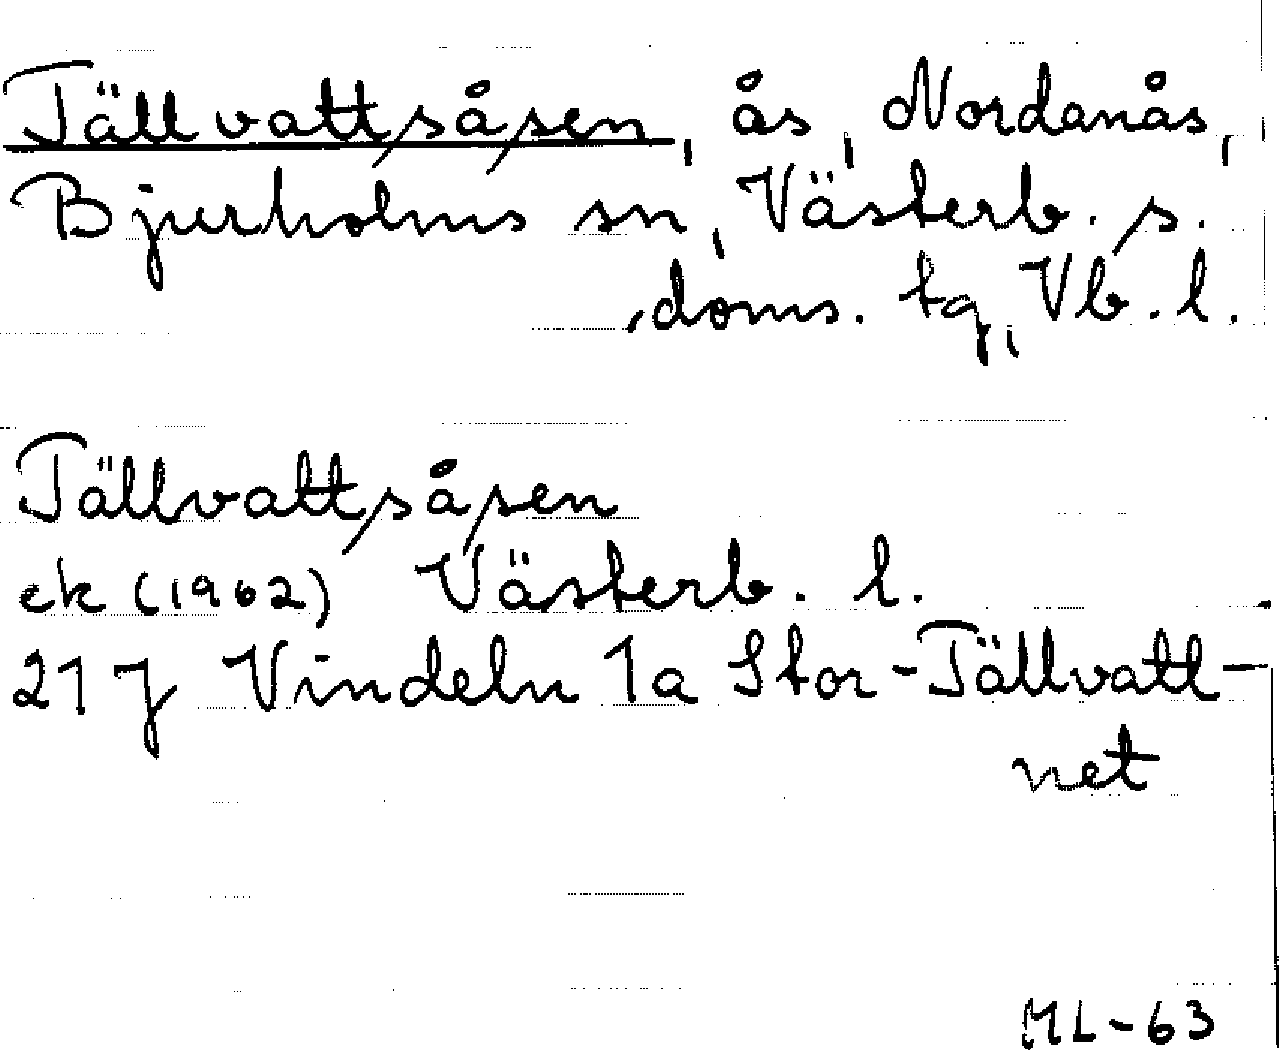 Tällvattsåsen, ås, Nordanås,
Bjurholms sn, Västerb. s.
doms. tg, Vb. l.
Tällvattsåsen
ek (1962) Västerb. l.
21 J Vindeln 1a Stor-Tällvatt-
net
ML-63